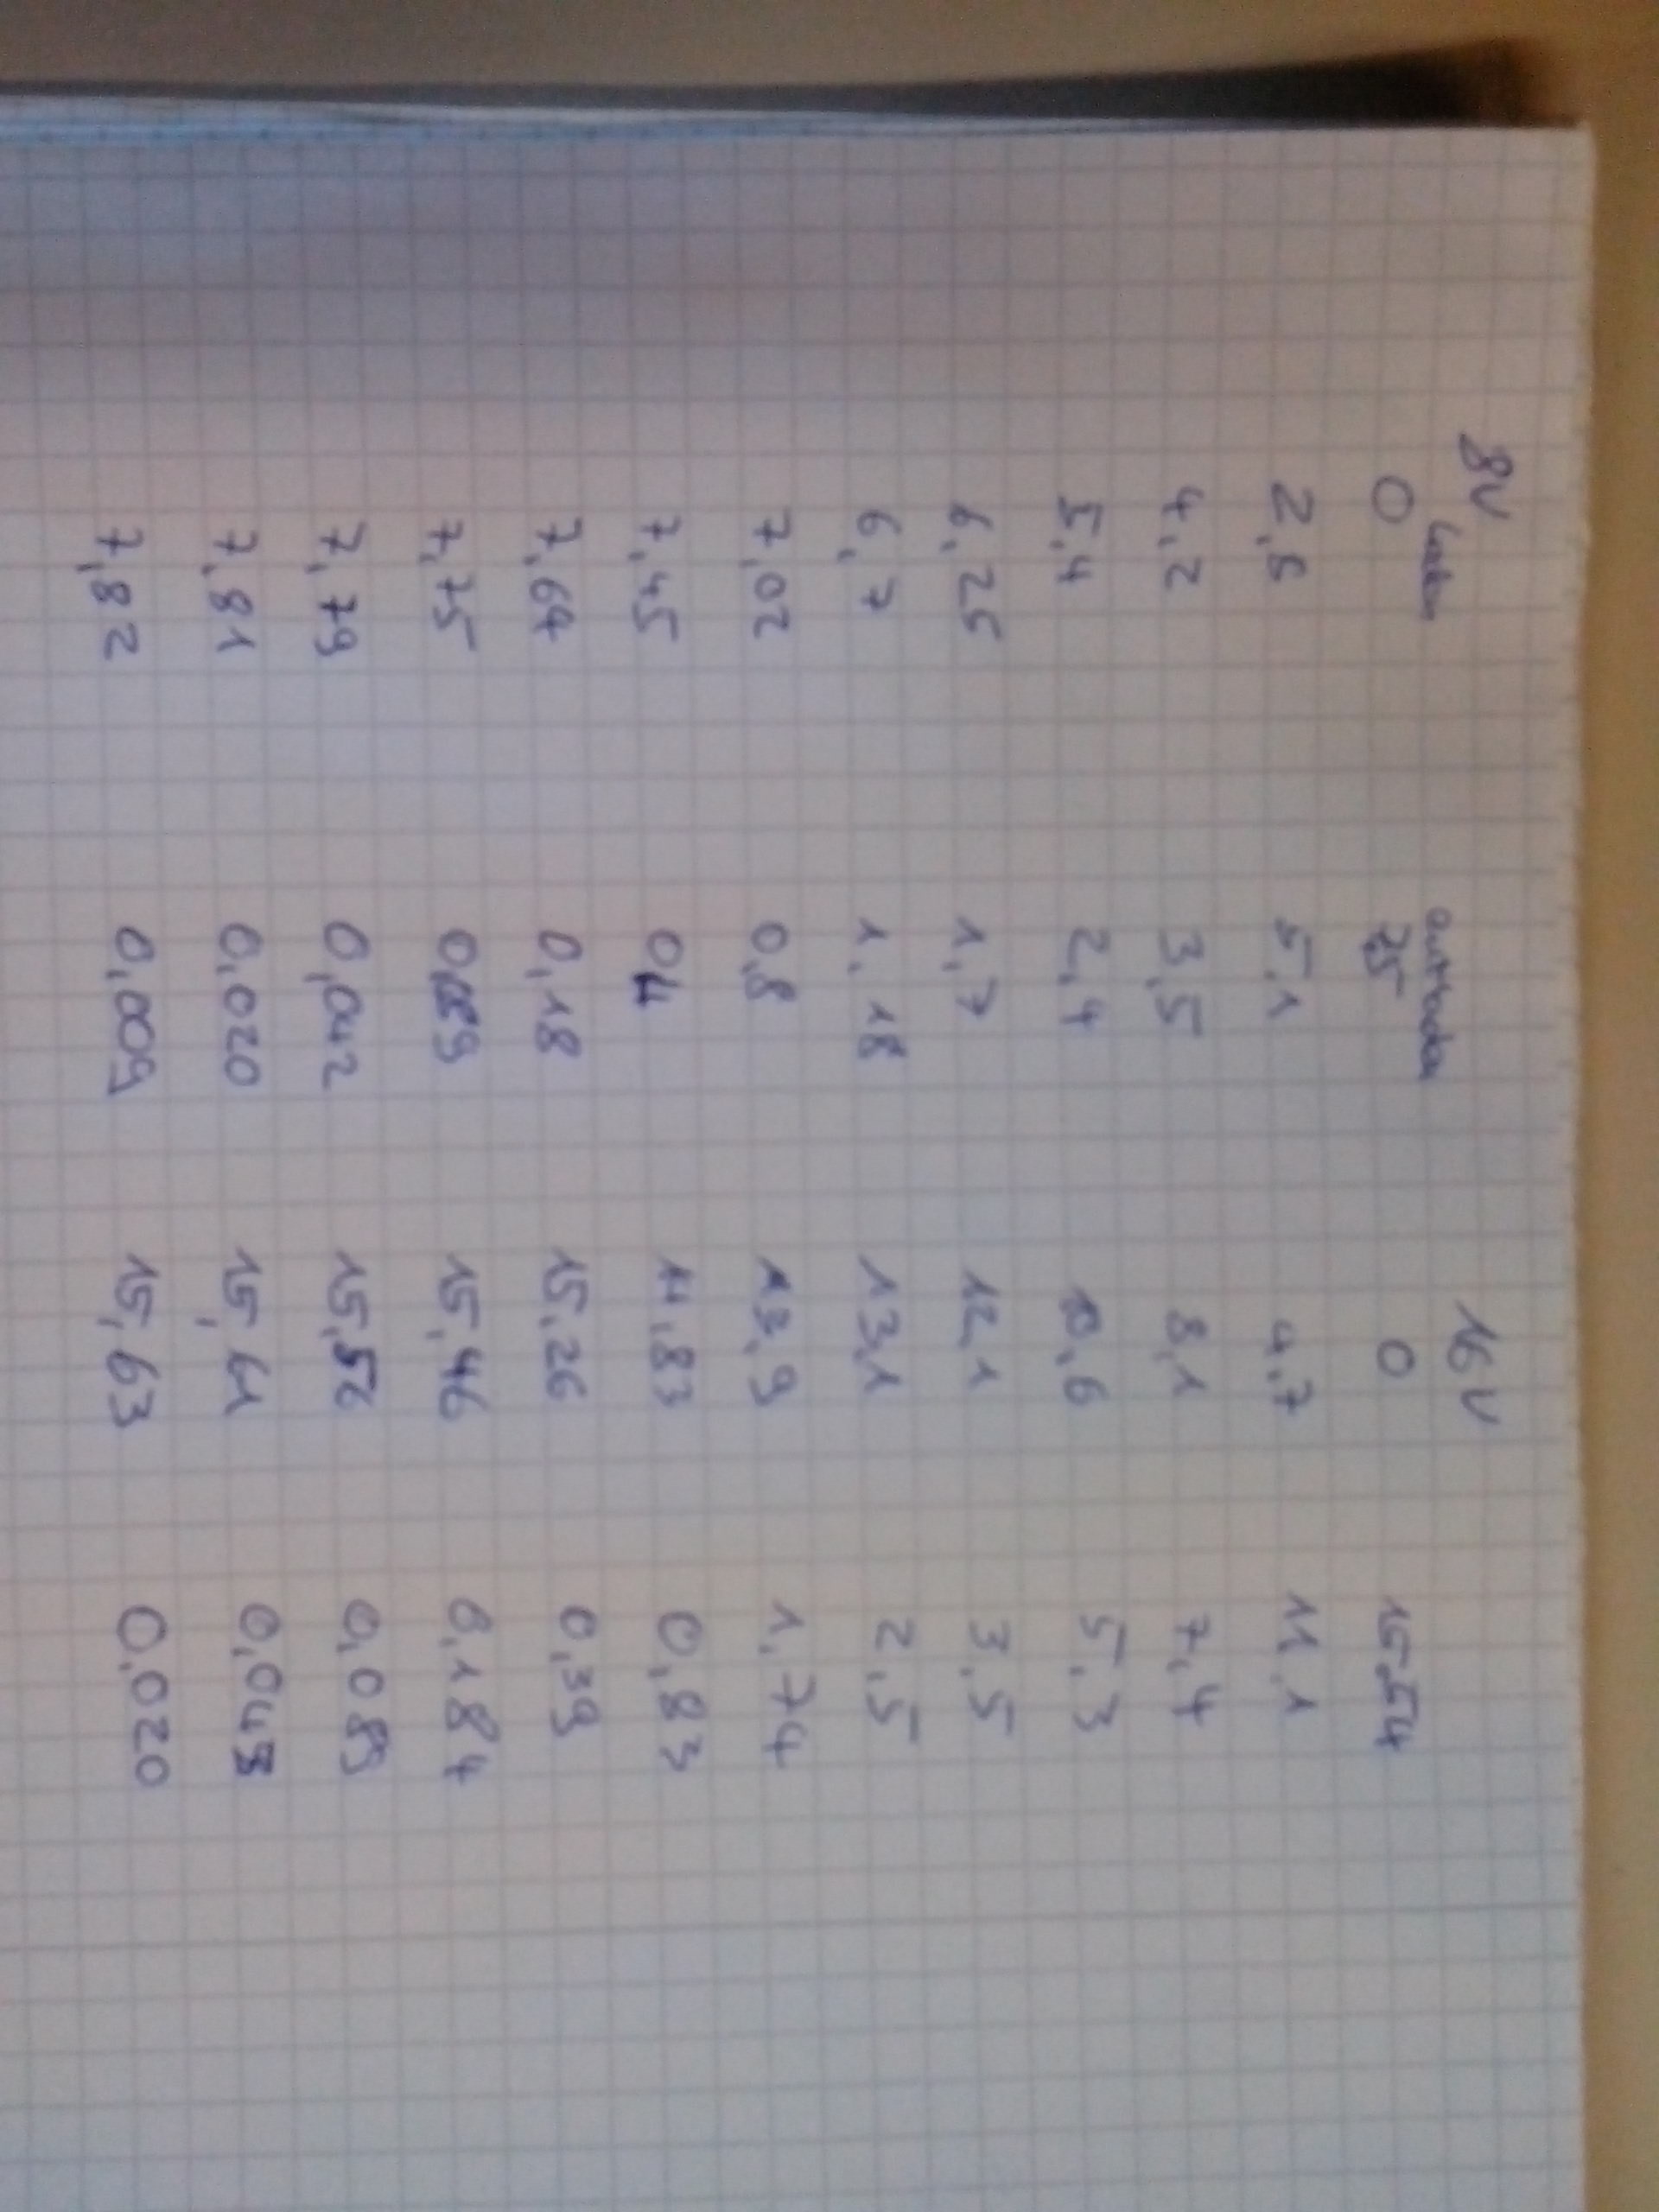 8V 16V
laden entladen
0 7,5 0 15,54
2,8 5,1 4,7 11,1
4,2 3,5 8,1 7,4
5,4 2,4 10,6 5,3
6,25 1,7 12,1 3,5
6,7 1,18 13,1 2,5
7,02 0,8 13,9 1,74
7,45 0,4 14,83 0,83
7,64 0,18 15,26 0,39
7,75 0,089 15,46 0,184
7,79 0,042 15,56 0,089
7,81 0,020 15,61 0,043
7,82 0,009 15,63 0,020